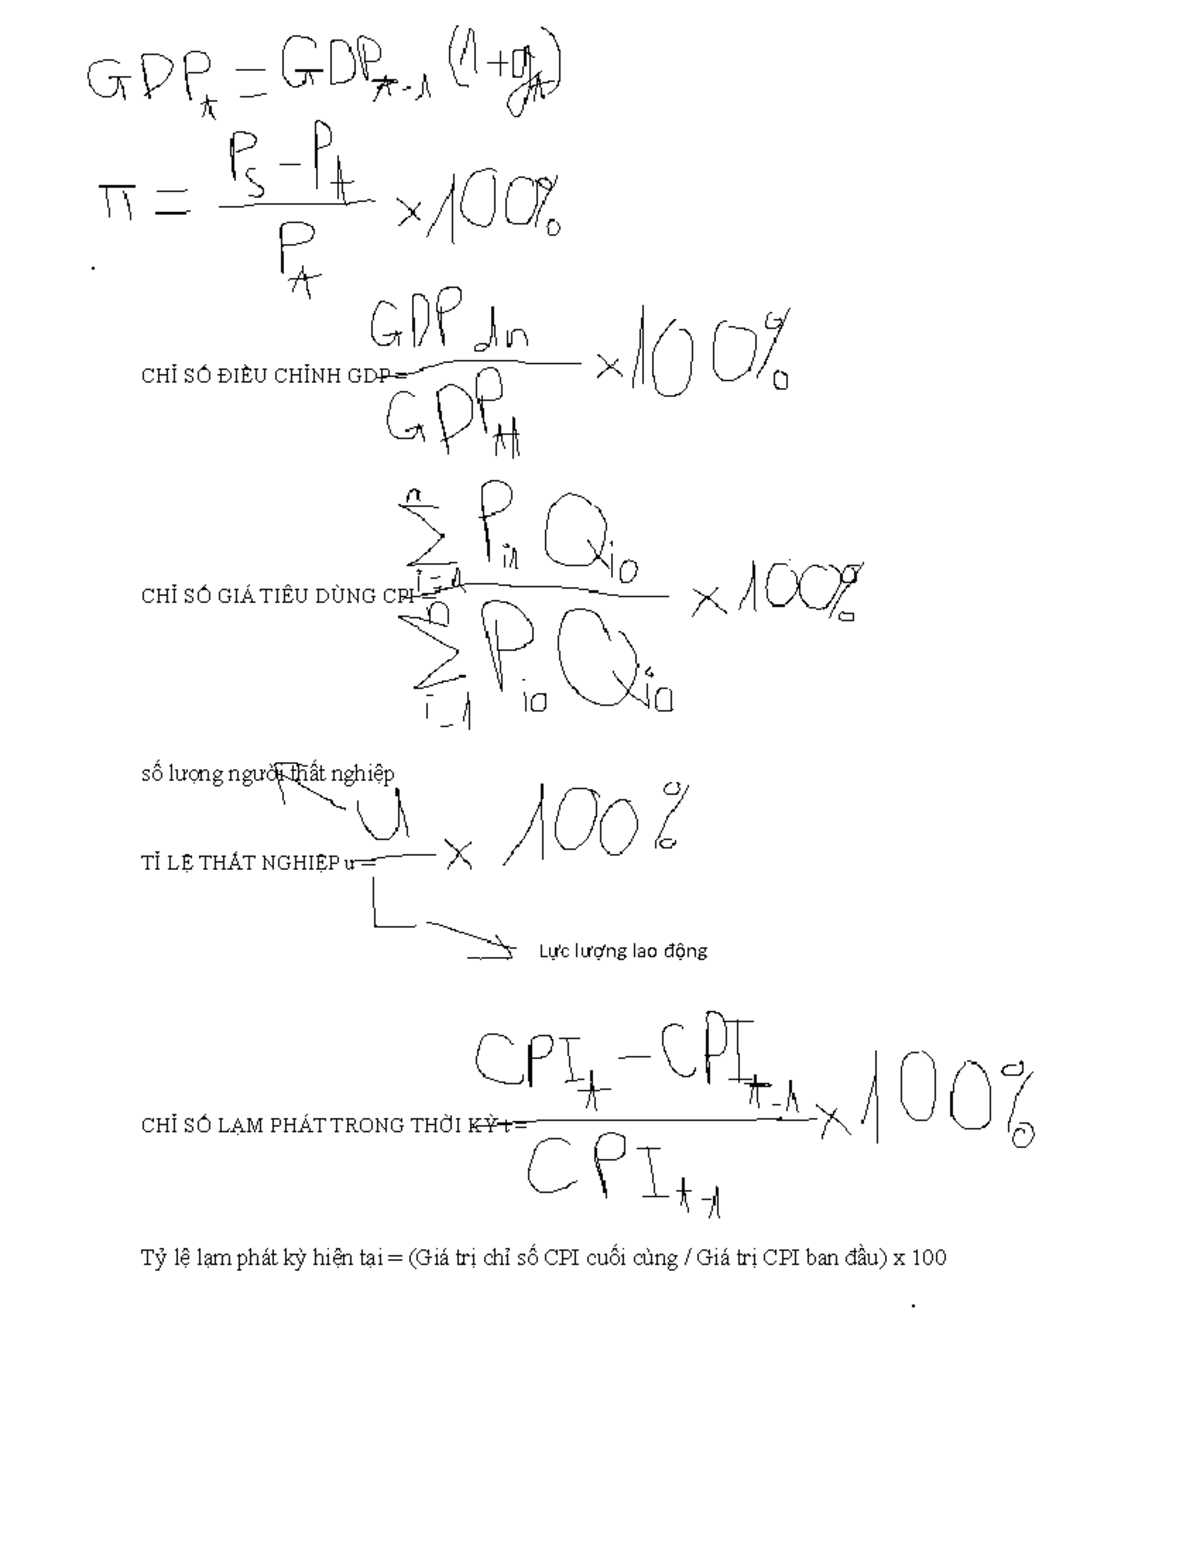 GDP_t = GDP_t-1 (1+g_t)
π = (P_S - P_t) / P_t × 100%
CHỈ SỐ ĐIỀU CHỈNH GDP = GDP_dn / GDP_tt × 100%
CHỈ SỐ GIÁ TIÊU DÙNG CPI = ∑ n i=1 P_i1 Q_i0 / ∑ n i=1 P_i0 Q_i0 × 100%
số lượng người thất nghiệp
TỈ LỆ THẤT NGHIỆP u = U / L × 100%
Lực lượng lao động
CHỈ SỐ LẠM PHÁT TRONG THỜI KỲ t = (CPI_t - CPI_t-1) / CPI_t-1 × 100%
Tỷ lệ lạm phát kỳ hiện tại = (Giá trị chỉ số CPI cuối cùng / Giá trị CPI ban đầu) x 100